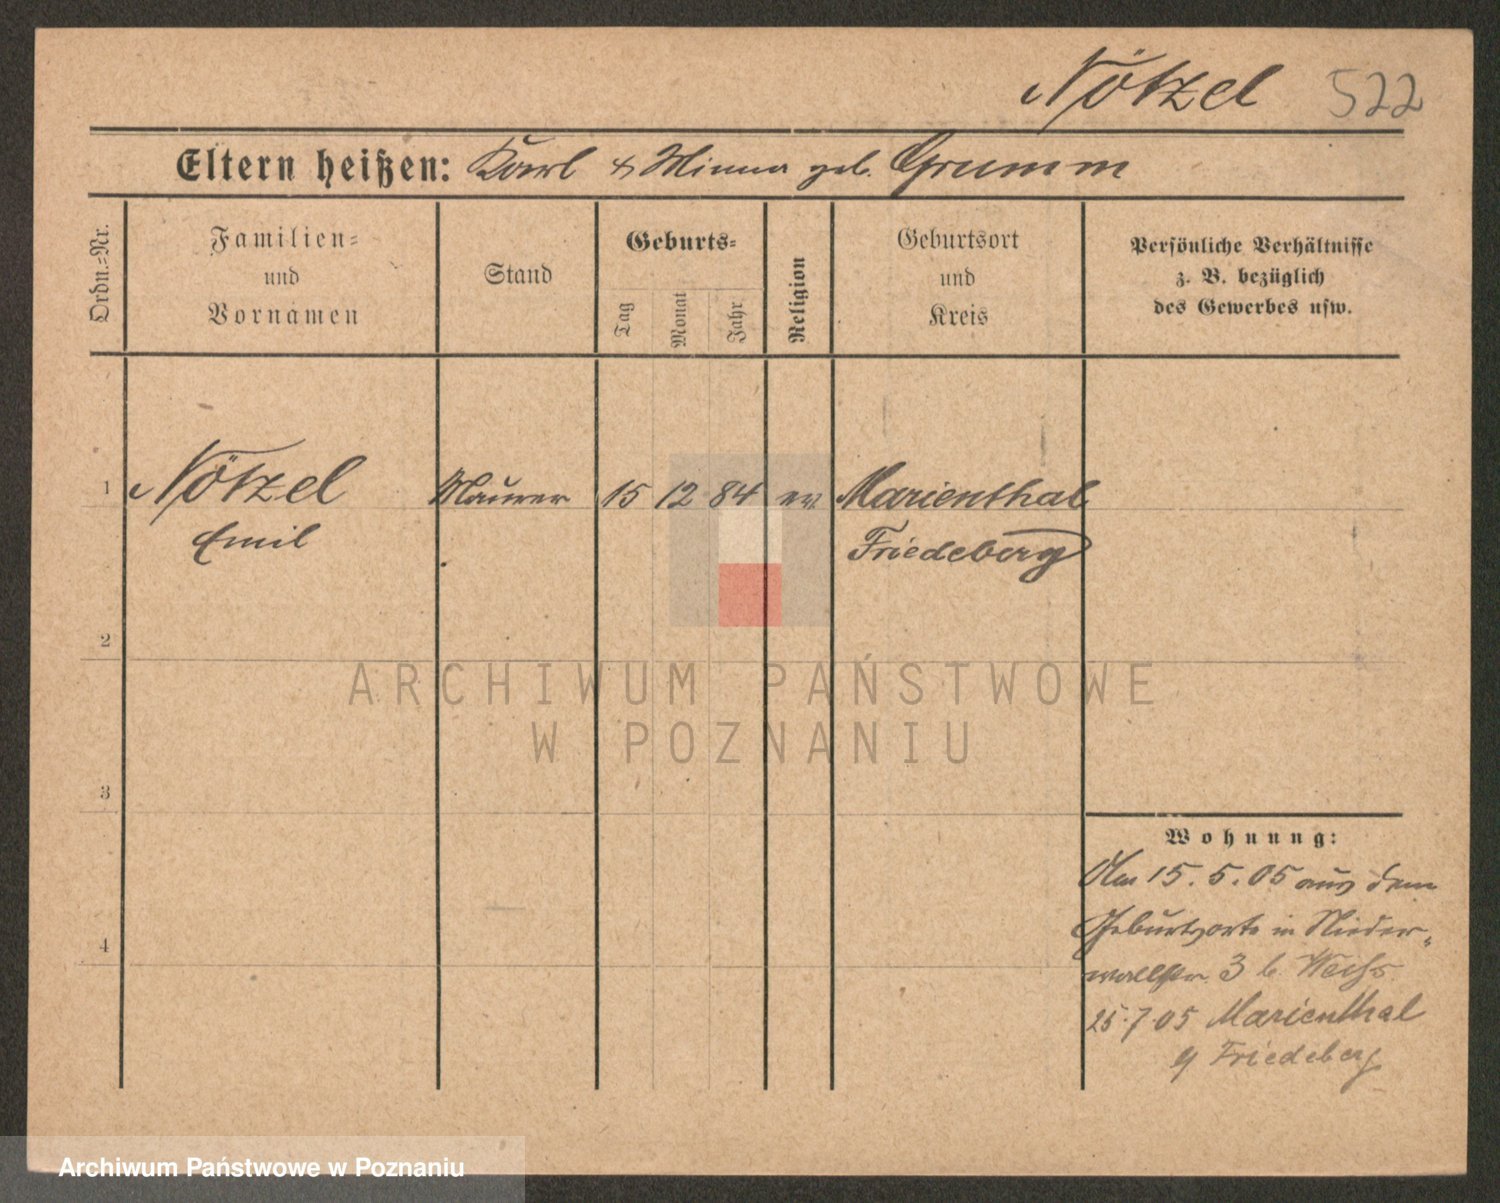 Nötzel 522
Eltern heißen: Karl & Minna geb. Grumm
Ordn.-Nr.
Familien-
und
Vornamen
Stand
Geburts-
Tag
Monat
Jahr
Religion
Geburtsort
und
Kreis
Persönliche Verhältnisse
z. B. bezüglich
des Gewerbes usw.
1 Nötzel Maurer 15 12 84 ev Marienthal
Emil Friedeberg
2
ARCHIWUM PAŃSTWOWE
W POZNANIU
3
Wohnung:
Am 15.5.05 aus dem
Geburtsorte in Nieder-
wallstr. 3 b. Weiss
4
25.7.05 Marienthal
Friedeberg
Archiwum Państwowe w Poznaniu